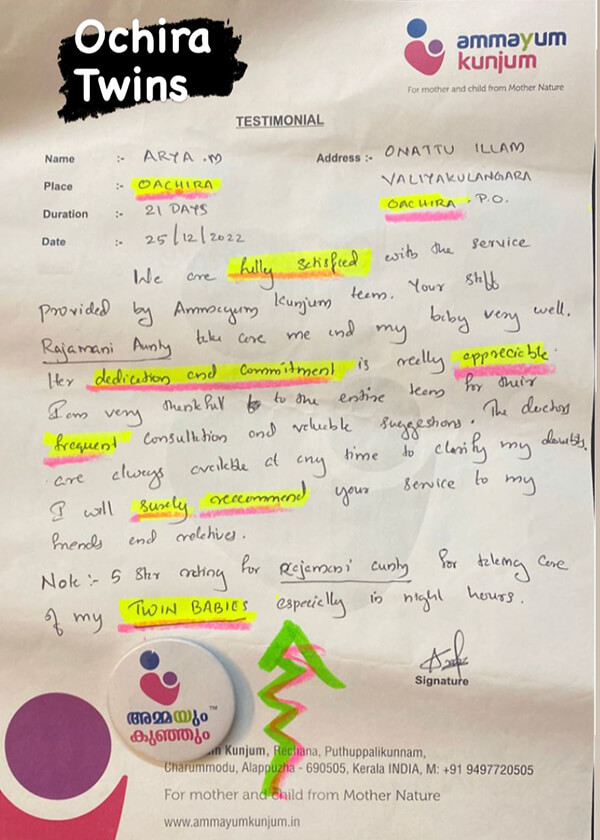 Ochira
Twins
ammayum
kunjum
For mother and child from Mother Nature
TESTIMONIAL
Name :- ARYA .M
Address :- ONATTU ILLAM
Place :- OACHIRA
VALIYAKULANGARA
Duration :- 21 DAYS
OACHIRA . P.O.
Date :- 25/12/2022
We are fully satisfied with the service
provided by Ammayum Kunjum team. Your staff
Rajamani Aunty take care me and my baby very well.
Her dedication and commitment is really appreciable.
I am very thankful to the entire team for their
frequent consultation and valuable suggestions. The doctors
are always available at any time to clarify my doubts.
I will surely reccommend your service to my
friends and relatives.
Note :- 5 Star rating for Rajamani aunty for taking care
of my TWIN BABIES especially in night hours.
Signature
അമ്മയും TM
കുഞ്ഞും
Kunjum, Rechana, Puthuppalikunnam,
Charummodu, Alappuzha - 690505, Kerala INDIA, M: +91 9497720505
For mother and child from Mother Nature
www.ammayumkunjum.in